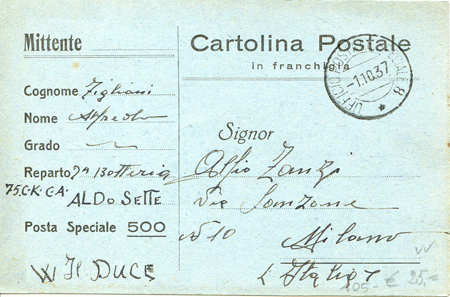 Mittente
Cognome Zigliani
Nome Alfredo
Grado
Reparto 7ª Batteria
75.C.K.C.A.
ALDO SETTE
Posta Speciale 500
W Il DUCE
Cartolina Postale
in franchigia
UFFICIO POSTALE SPECIALE 8
-1.10.37
Signor
Alfio Zanzi
Via Sanzone
N 10
Milano
Italia
105- € 25,-